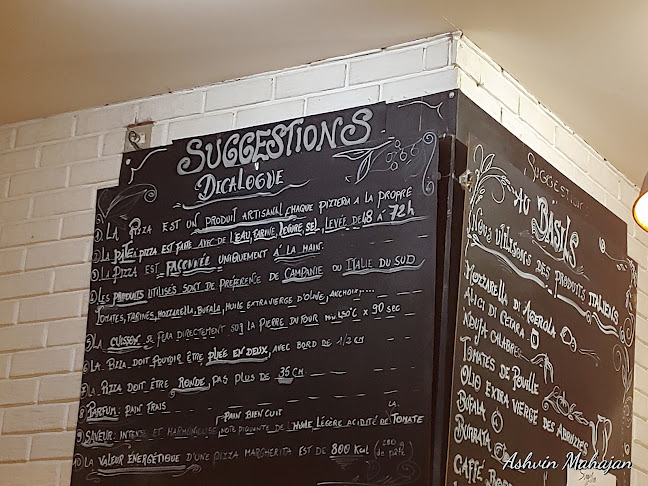 SUGGESTIONS
DECALOGUE
1) LA PIZZA EST UN PRODUIT ARTISANAL CHAQUE PIZZERIA A LA PROPRE
2) LA PÂTE À PIZZA EST FAITE AVEC DE L'EAU, FARINE, LEVURE, SEL, LEVÉE DE 48 À 72h
3) LA PIZZA EST FAÇONNÉE UNIQUEMENT À LA MAIN.
4) LES PRODUITS UTILISÉS SONT DE PREFERENCE DE CAMPANIE OU ITALIE DU SUD
TOMATES, FARINES, MOZZARELLA, BUFALA, HUILE EXTRA VIERGE D'OLIVE, ANCHOIS....
5) LA CUISSON SE FERA DIRECTEMENT SUR LA PIERRE DU FOUR 450°C x 90 SEC
6) LA PIZZA DOIT POUVOIR ÊTRE PLIÉE EN DEUX, AVEC BORD DE 1/2 CM
7) LA PIZZA DOIT ÊTRE RONDE, PAS PLUS DE 35 CM
8) PARFUM: PAIN FRAIS
PAIN BIEN CUIT
9) SAVEUR: INTENSE ET HARMONIEUSE, NOTE PIQUANTE DE L'HUILE LÉGÈRE ACIDITÉ DE LA TOMATE
10) LA VALEUR ÉNERGÉTIQUE D'UNE PIZZA MARGHERITA EST DE 800 Kcal (280 g de pâte)
SUGGESTIONS
AU BASILS
NOUS UTILISONS DES PRODUITS ITALIENS
MOZZARELLA DI AGEROLA
ALICI DI CETARA
NDUJA CALABRE
TOMATES DE POUILLE
OLIO EXTRA VIERGE DES ABRUZZES
BUFALA
BURRATA
CAFFÈ
Ashvin Mahajan